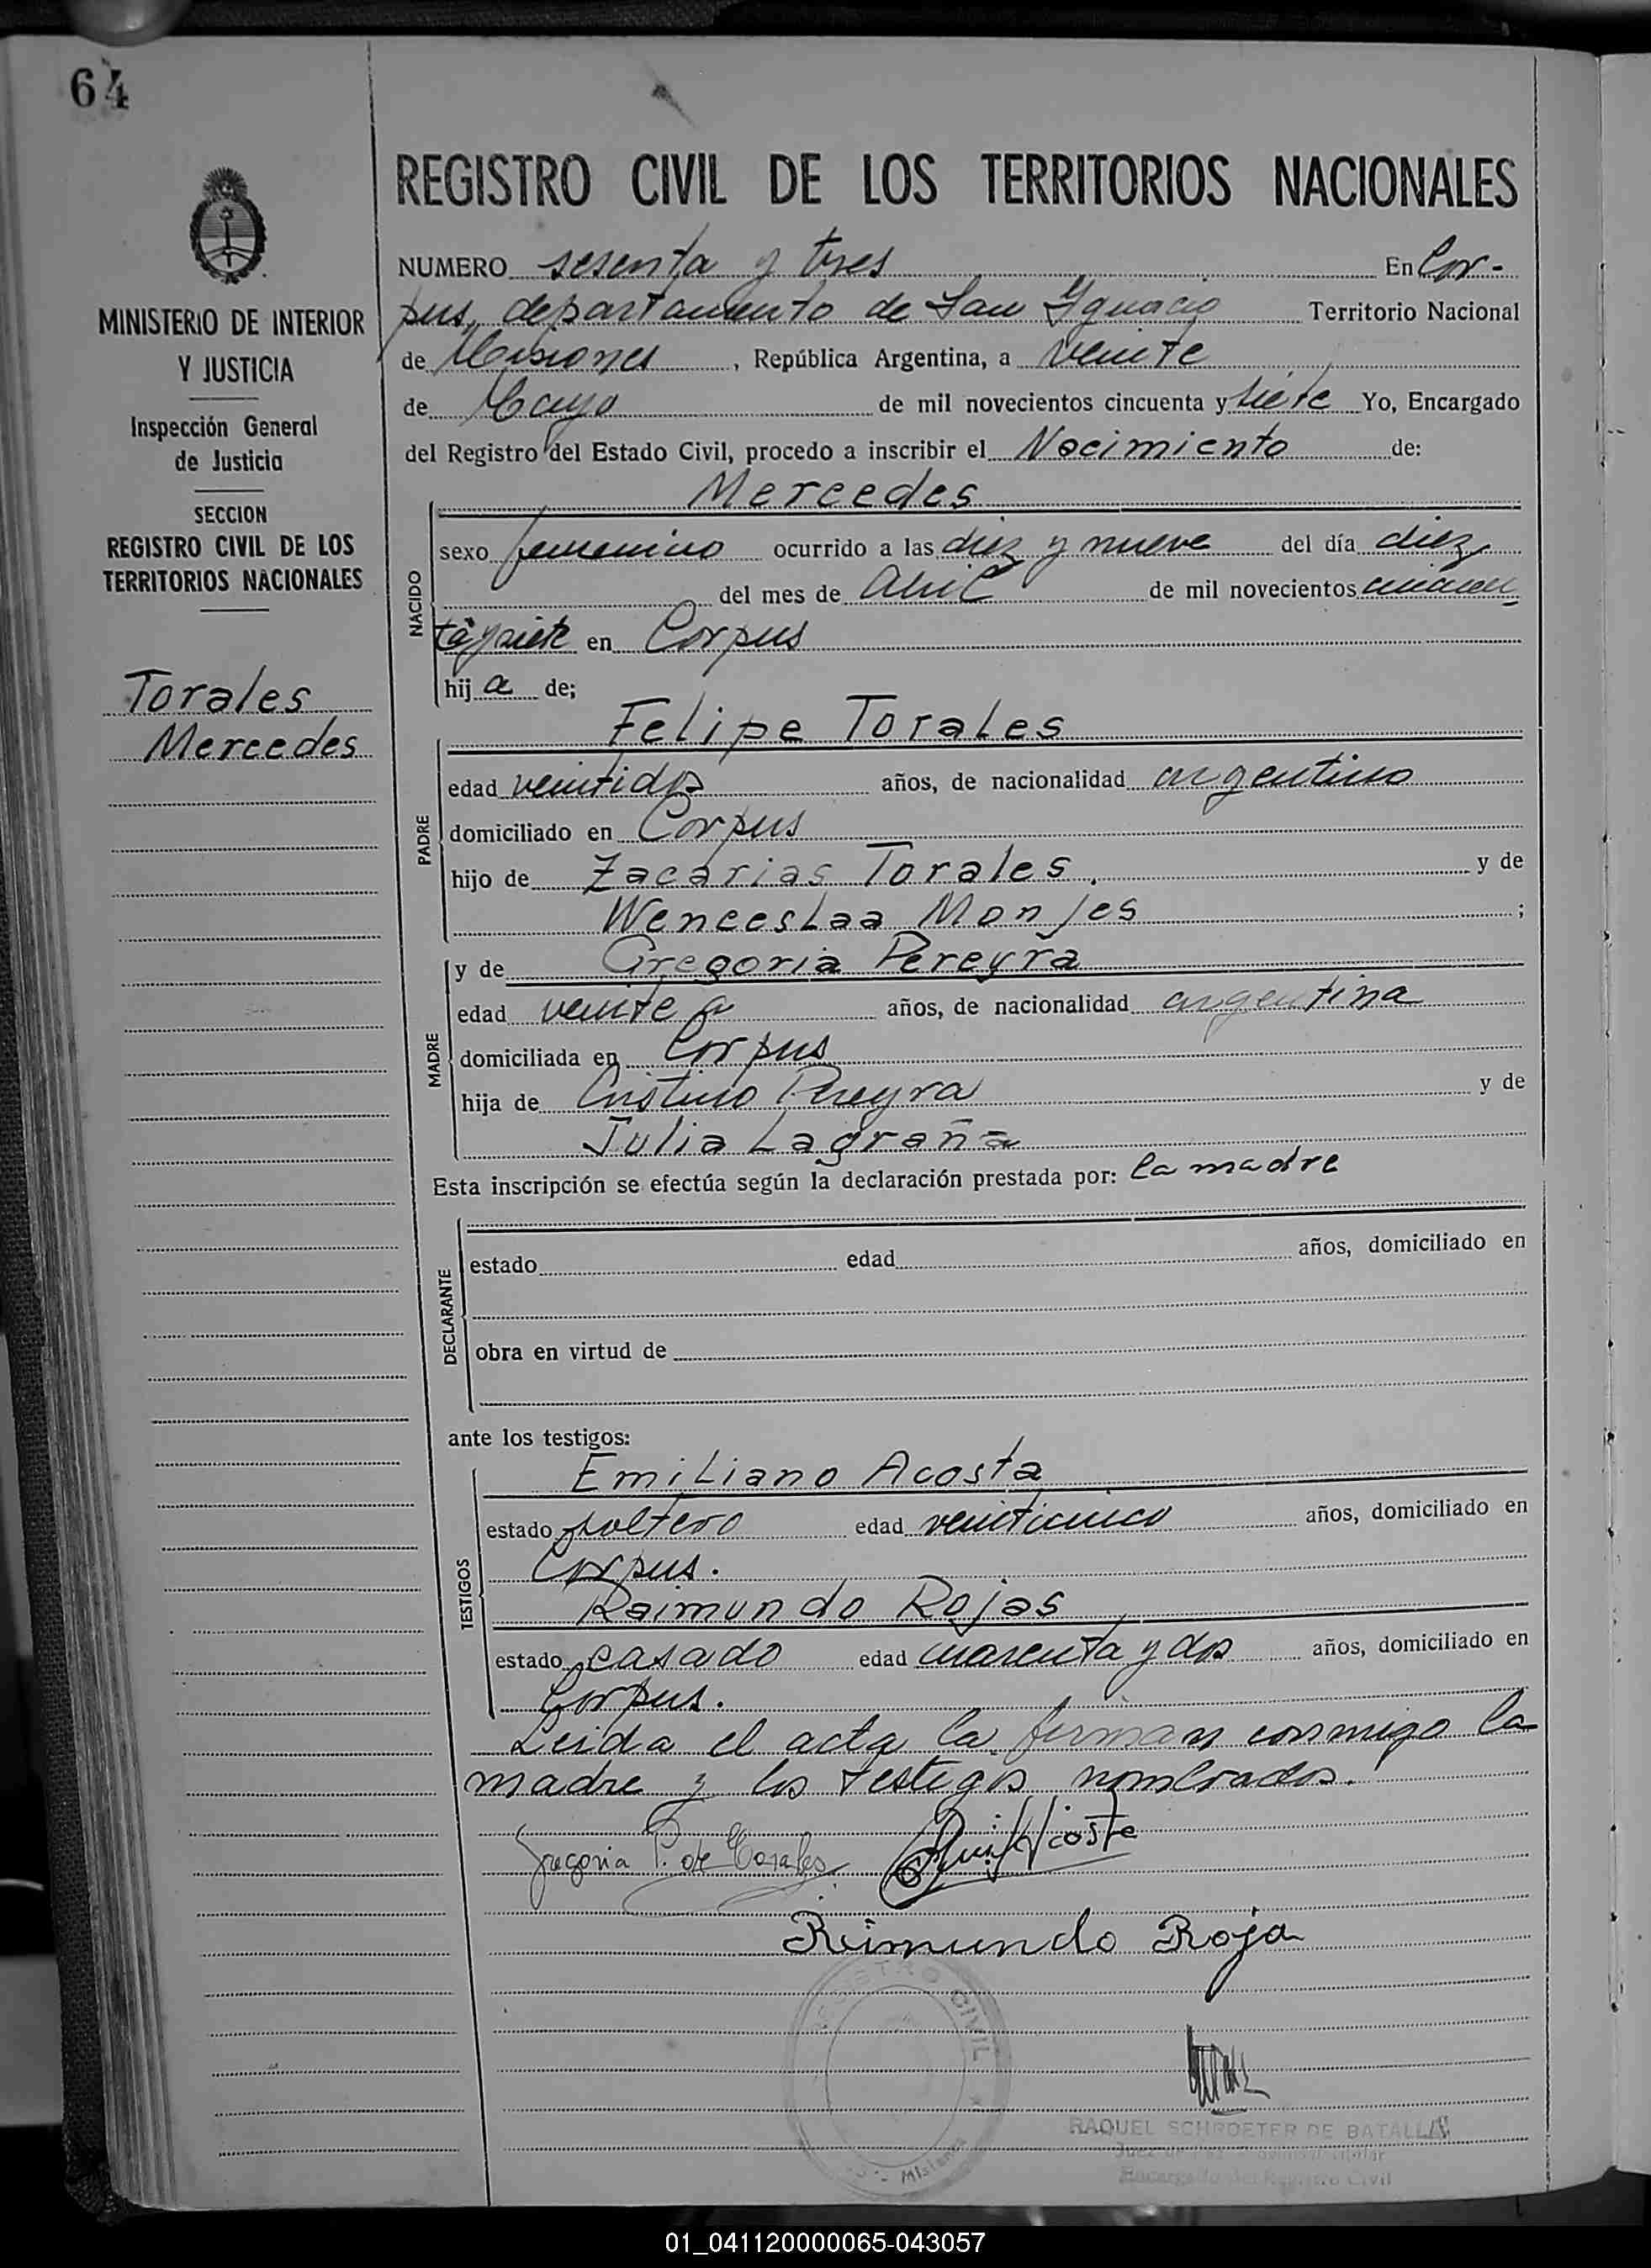 64
REGISTRO CIVIL DE LOS TERRITORIOS NACIONALES
MINISTERIO DE INTERIOR
Y JUSTICIA
Inspección General
de Justicia
SECCION
REGISTRO CIVIL DE LOS
TERRITORIOS NACIONALES
Torales
Mercedes
NUMERO sesenta y tres En Cor-
pus, departamento de San Ygnacio Territorio Nacional
de Misiones, República Argentina, a veinte
de Mayo de mil novecientos cincuenta y siete Yo, Encargado
del Registro del Estado Civil, procedo a inscribir el Nacimiento de:
Mercedes
NACIDO
sexo femenino ocurrido a las diez y nueve del día diez
del mes de Abril de mil novecientos cincuen
ta y siete en Corpus
hija de;
Felipe Torales
PADRE
edad veintidos años, de nacionalidad argentino
domiciliado en Corpus
hijo de Zacarias Torales. y de
Wenceslaa Monjes ;
MADRE
y de Gregoria Pereyra
edad veinte años, de nacionalidad argentina
domiciliada en Corpus
hija de Cristino Pereyra y de
Julia Lagraña
Esta inscripción se efectúa según la declaración prestada por: la madre
DECLARANTE
estado edad años, domiciliado en
obra en virtud de
ante los testigos:
TESTIGOS
Emiliano Acosta
estado soltero edad veinticinco años, domiciliado en
Corpus.
Raimundo Rojas
estado casado edad cuarenta y dos años, domiciliado en
Corpus.
Leida el acta la firman conmigo la
madre y los testigos nombrados.
Gregoria P. de Torales
Reimundo Roja
REGISTRO CIVIL
Misiones
RAQUEL SCHROETER DE BATALLA
Encargado del Registro Civil
01_041120000065-043057